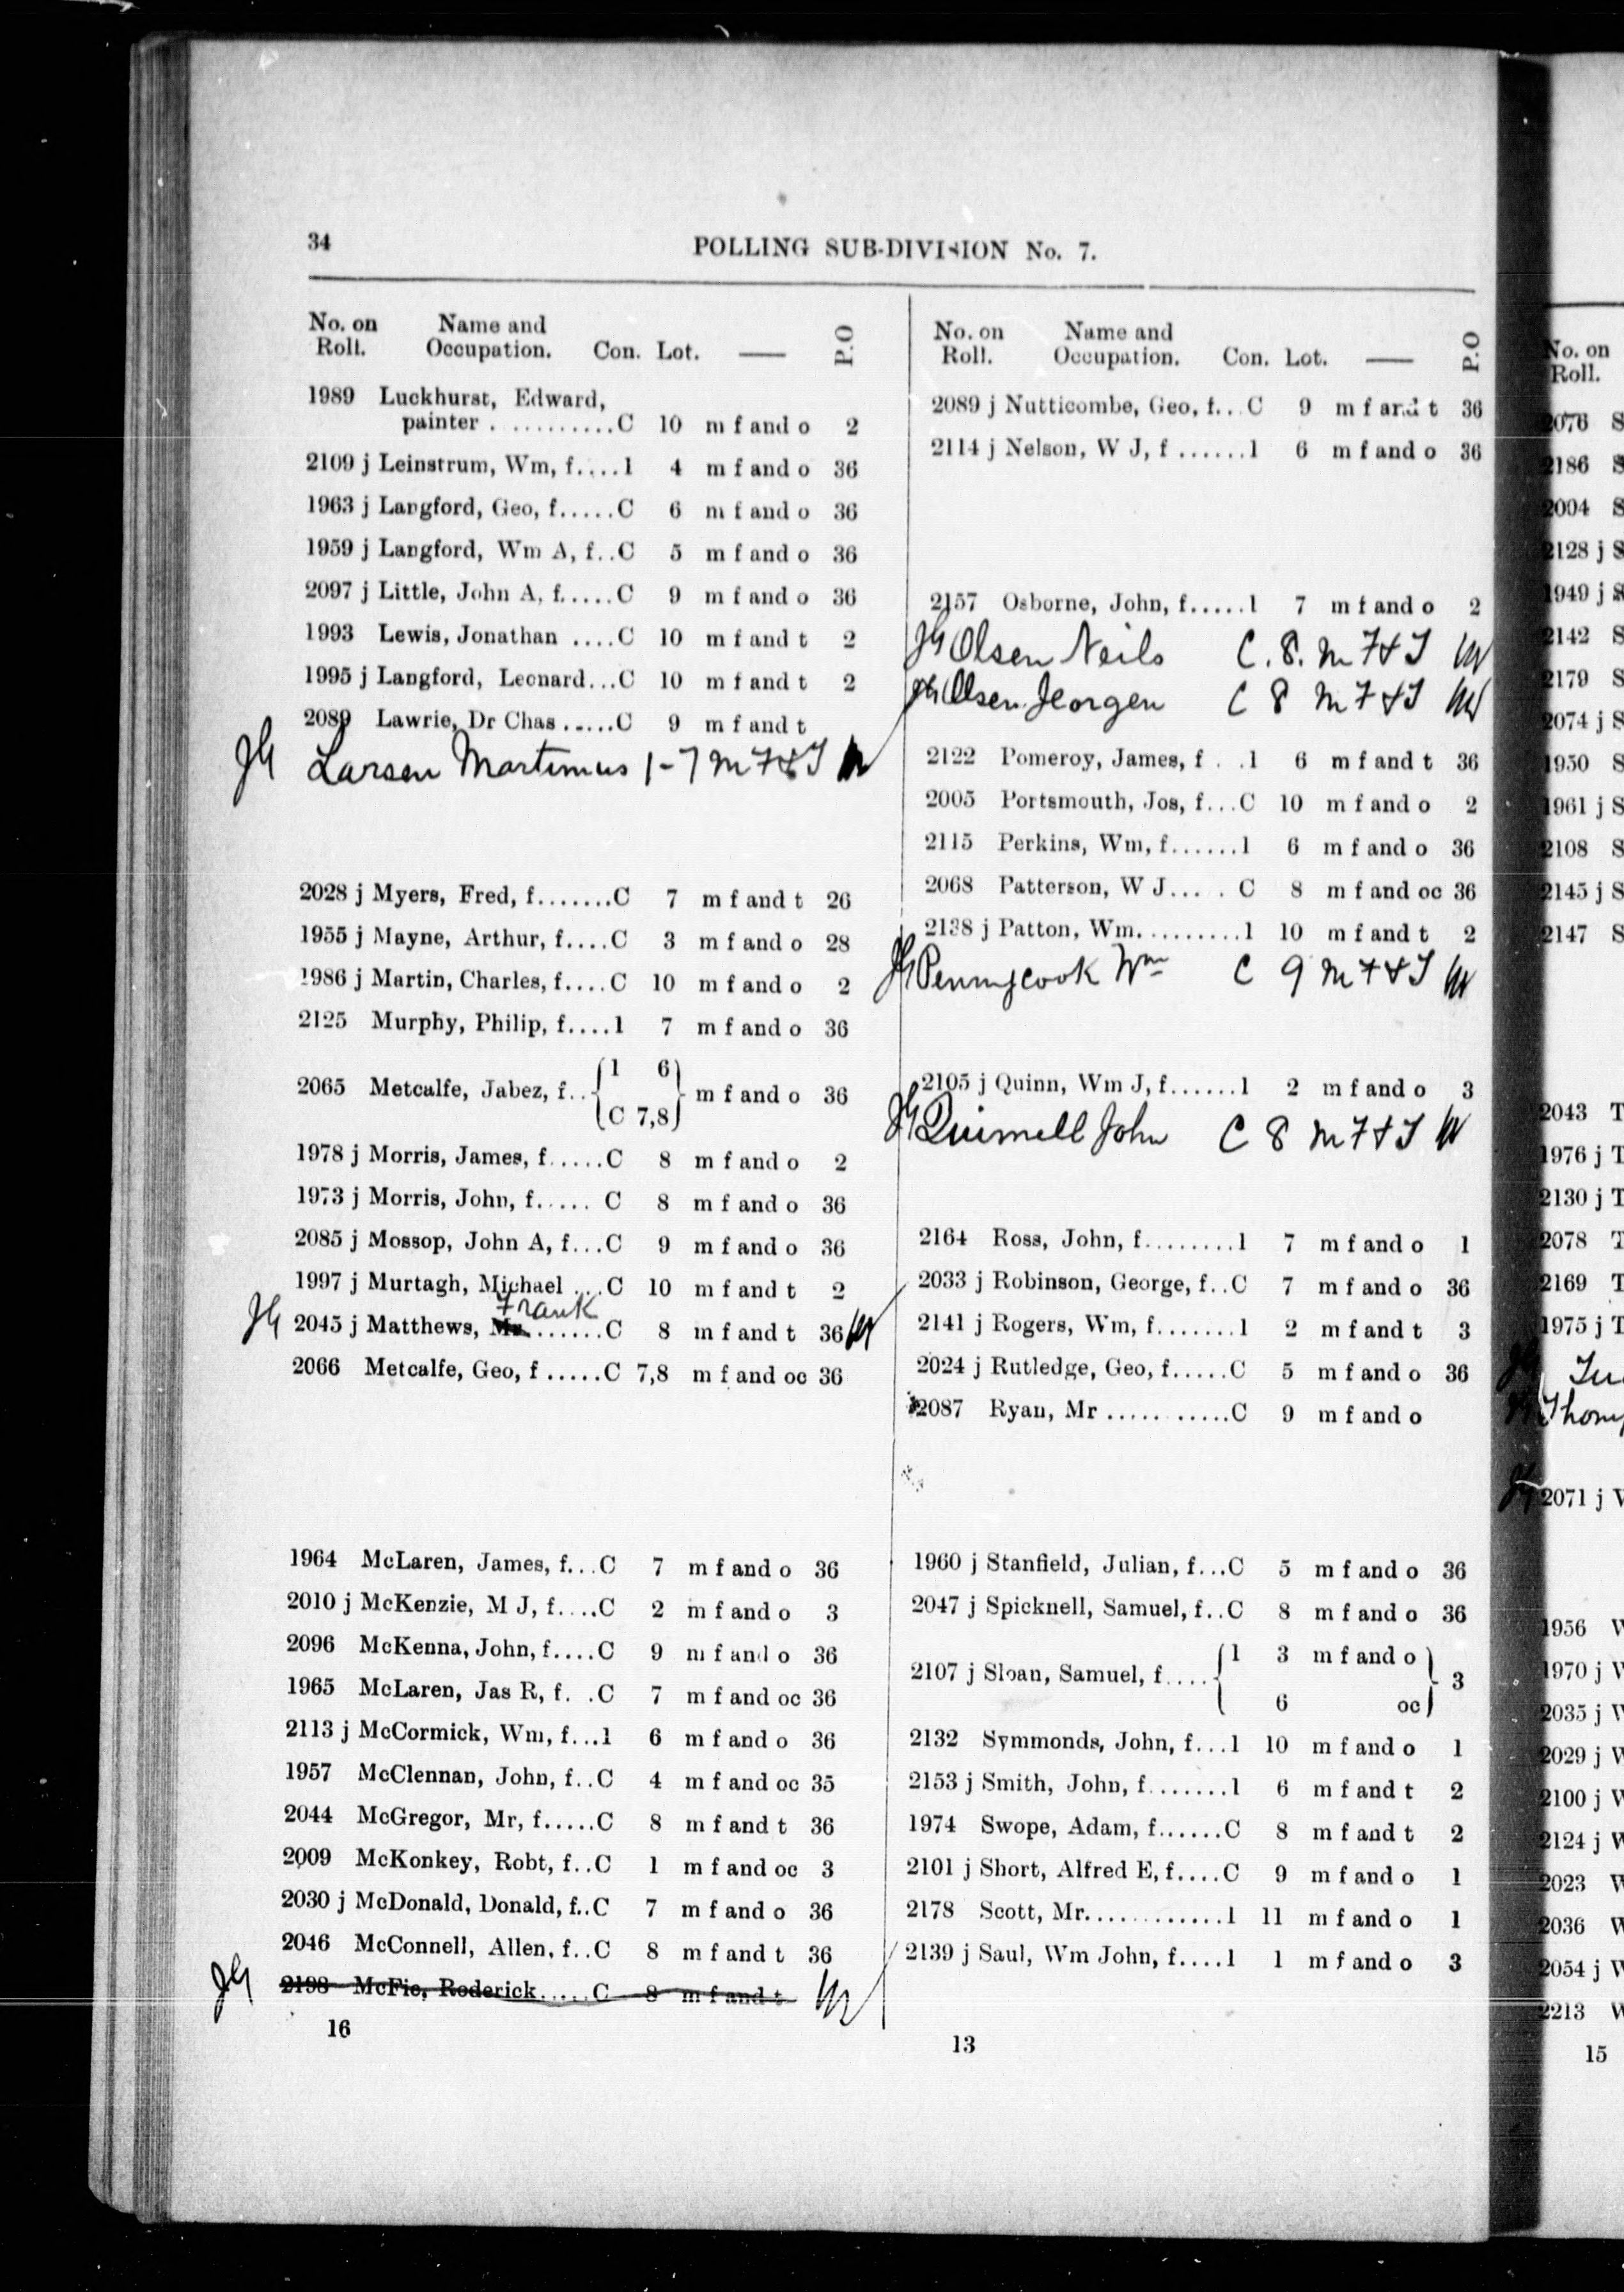 34
POLLING SUB-DIVISION No. 7.
No. on Name and
Roll. Occupation. Con. Lot. — P.O
1989 Luckhurst, Edward,
painter . .........C 10 m f and o 2
2109 j Leinstrum, Wm, f....1 4 m f and o 36
1963 j Langford, Geo, f.....C 6 m f and o 36
1959 j Langford, Wm A, f..C 5 m f and o 36
2097 j Little, John A, f.....C 9 m f and o 36
1993 Lewis, Jonathan ....C 10 m f and t 2
1995 j Langford, Leonard...C 10 m f and t 2
2089 Lawrie, Dr Chas .....C 9 m f and t
JG Larsen Martinus 1-7 M F & T
2028 j Myers, Fred, f.......C 7 m f and t 26
1955 j Mayne, Arthur, f....C 3 m f and o 28
1986 j Martin, Charles, f....C 10 m f and o 2
2125 Murphy, Philip, f....1 7 m f and o 36
1 6
2065 Metcalfe, Jabez, f.. m f and o 36
C 7,8
1978 j Morris, James, f.....C 8 m f and o 2
1973 j Morris, John, f..... C 8 m f and o 36
2085 j Mossop, John A, f...C 9 m f and o 36
1997 j Murtagh, Michael ...C 10 m f and t 2
Frank
JG 2045 j Matthews, Mr.......C 8 m f and t 36
2066 Metcalfe, Geo, f .....C 7,8 m f and oc 36
1964 McLaren, James, f...C 7 m f and o 36
2010 j McKenzie, M J, f....C 2 m f and o 3
2096 McKenna, John, f....C 9 m f and o 36
1965 McLaren, Jas R, f. .C 7 m f and oc 36
2113 j McCormick, Wm, f...1 6 m f and o 36
1957 McClennan, John, f..C 4 m f and oc 35
2044 McGregor, Mr, f.....C 8 m f and t 36
2009 McKonkey, Robt, f..C 1 m f and oc 3
2030 j McDonald, Donald, f..C 7 m f and o 36
2046 McConnell, Allen, f..C 8 m f and t 36
JG 2198 McFie, Roderick.....C 8 m f and t
16
No. on Name and
Roll. Occupation. Con. Lot. — P.O
2089 j Nutticombe, Geo, f...C 9 m f and t 36
2114 j Nelson, W J, f ......1 6 m f and o 36
2157 Osborne, John, f.....1 7 m f and o 2
JG Olsen Neils C. 8. M F & T
JG Olsen Jeorgen C 8 M F & T
2122 Pomeroy, James, f . .1 6 m f and t 36
2005 Portsmouth, Jos, f...C 10 m f and o 2
2115 Perkins, Wm, f......1 6 m f and o 36
2068 Patterson, W J... . C 8 m f and oc 36
2138 j Patton, Wm.........1 10 m f and t 2
JG Pennycook Wm C 9 M F & T
2105 j Quinn, Wm J, f......1 2 m f and o 3
JG Quimell John C 8 M F & T
2164 Ross, John, f........1 7 m f and o 1
2033 j Robinson, George, f..C 7 m f and o 36
2141 j Rogers, Wm, f.......1 2 m f and t 3
2024 j Rutledge, Geo, f.....C 5 m f and o 36
2087 Ryan, Mr ...........C 9 m f and o
1960 j Stanfield, Julian, f...C 5 m f and o 36
2047 j Spicknell, Samuel, f..C 8 m f and o 36
1 3 m f and o
2107 j Sloan, Samuel, f.... 3
6 oc
2132 Symmonds, John, f...1 10 m f and o 1
2153 j Smith, John, f.......1 6 m f and t 2
1974 Swope, Adam, f......C 8 m f and t 2
2101 j Short, Alfred E, f....C 9 m f and o 1
2178 Scott, Mr............1 11 m f and o 1
2139 j Saul, Wm John, f....1 1 m f and o 3
13
No. on
Roll.
2076 S
2186 S
2004 S
2128 j S
1949 j S
2142 S
2179 S
2074 j S
1950 S
1961 j S
2108 S
2145 j S
2147 S
2043 T
1976 j T
2130 j T
2078 T
2169 T
1975 j T
2071 j V
1956 W
1970 j W
2035 j W
2029 j W
2100 j W
2124 j W
2023 W
2036 W
2054 j W
2213 W
15